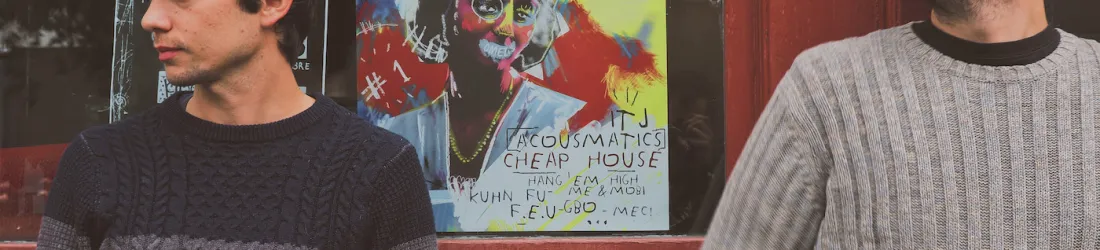 #1
IT J
ACOUSMATICS
CHEAP HOUSE
HANG 'EM HIGH
KUHN FU - ME & MOBI
F.E.U - GBO - MEC!
...